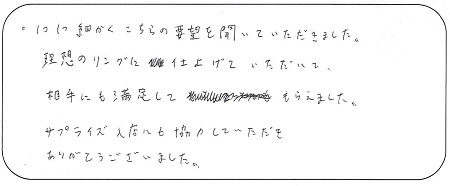 ・1つ1つ細かくこちらの要望を聞いていただきました。
理想のリングに仕上げていただいて、
相手にも満足してもらえました。
サプライズ入店にも協力していただき
ありがとうございました。